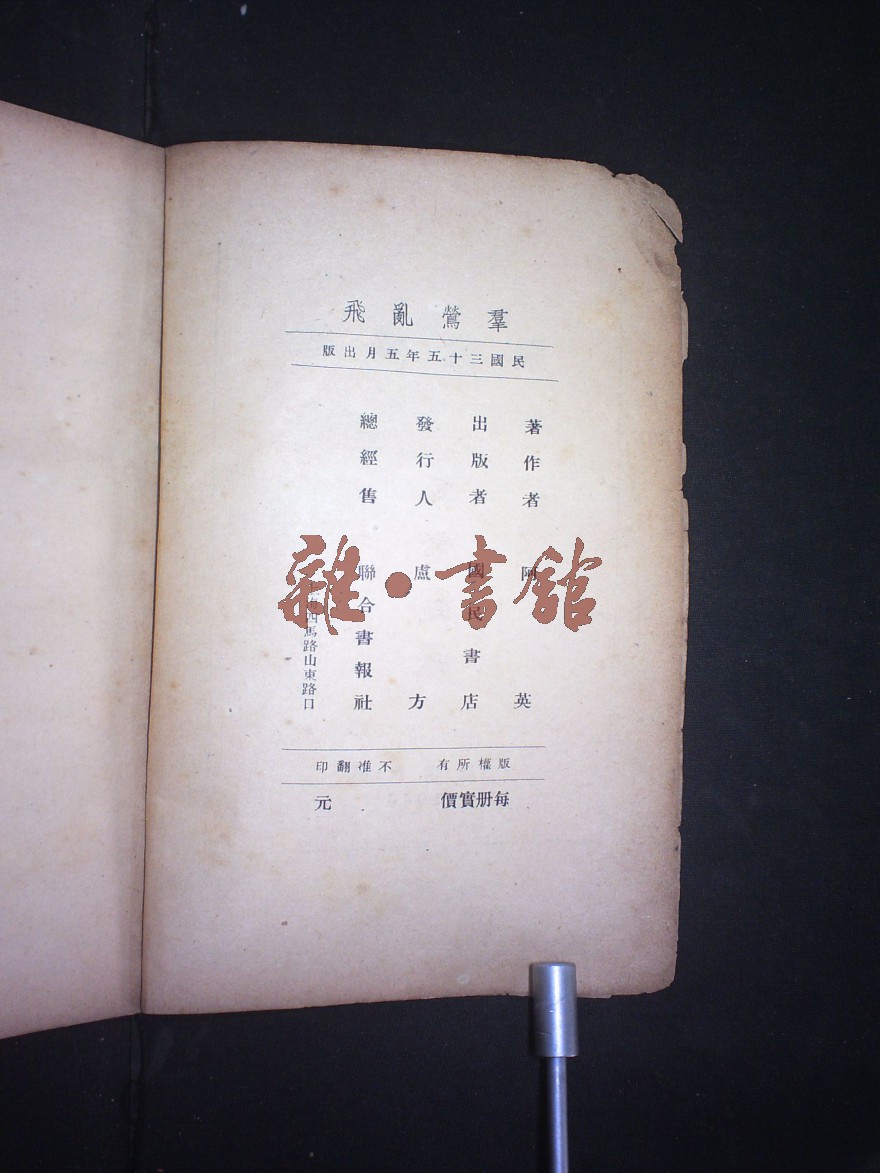 羣鶯亂飛
民國三十五年五月出版
著作者 阿英
出版者 國民書店
發行人 盧方
總經售 聯合書報社
上海四馬路山東路口
版權所有 不准翻印
每册實價 元
雜·書館